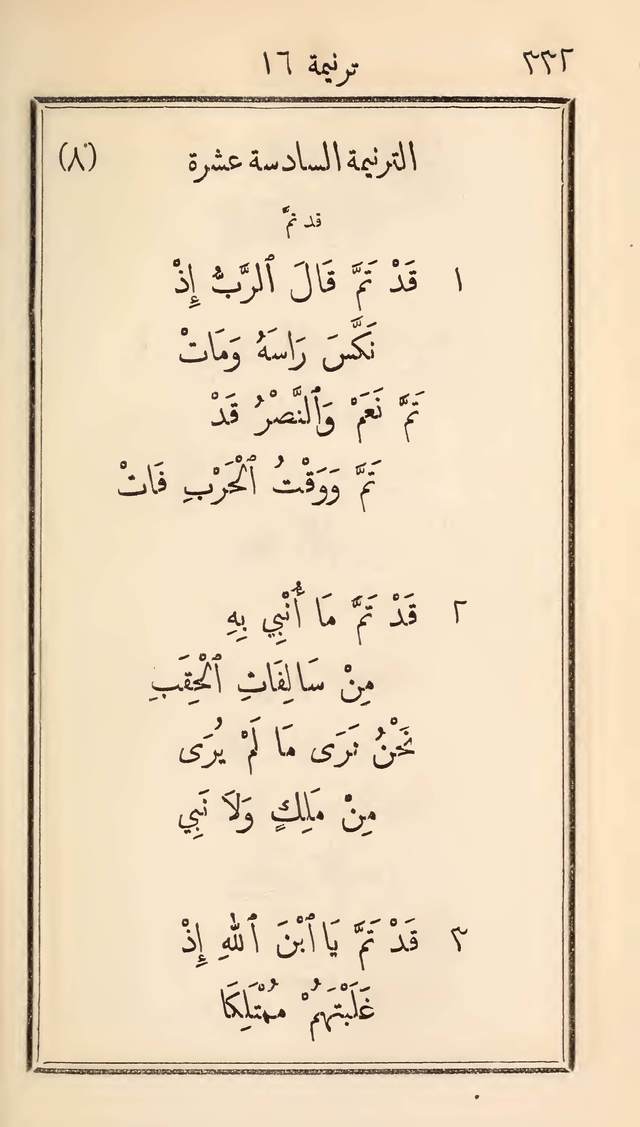 ٣٣٢ ترنيمة ١٦
الترنيمة السادسة عشرة (٨)
قد تمَّ
١ قَدْ تَمَّ قَالَ ٱلرَّبُّ إِذْ
نَكَّسَ رَاسَهُ وَمَاتْ
تَمَّ نَعَمْ وَٱلنَّصْرُ قَدْ
تَمَّ وَوَقْتُ ٱلْحَرْبِ فَاتْ
٢ قَدْ تَمَّ مَا أُنْبِي بِهِ
مِنْ سَالِفَاتِ ٱلْحِقَبِ
نَحْنُ نَرَى مَا لَمْ يُرَى
مِنْ مَلِكٍ وَلَا نَبِي
٣ قَدْ تَمَّ يَا ٱبْنَ ٱللهِ إِذْ
غَلَبْتَهُمْ مُمْتَلِكَا